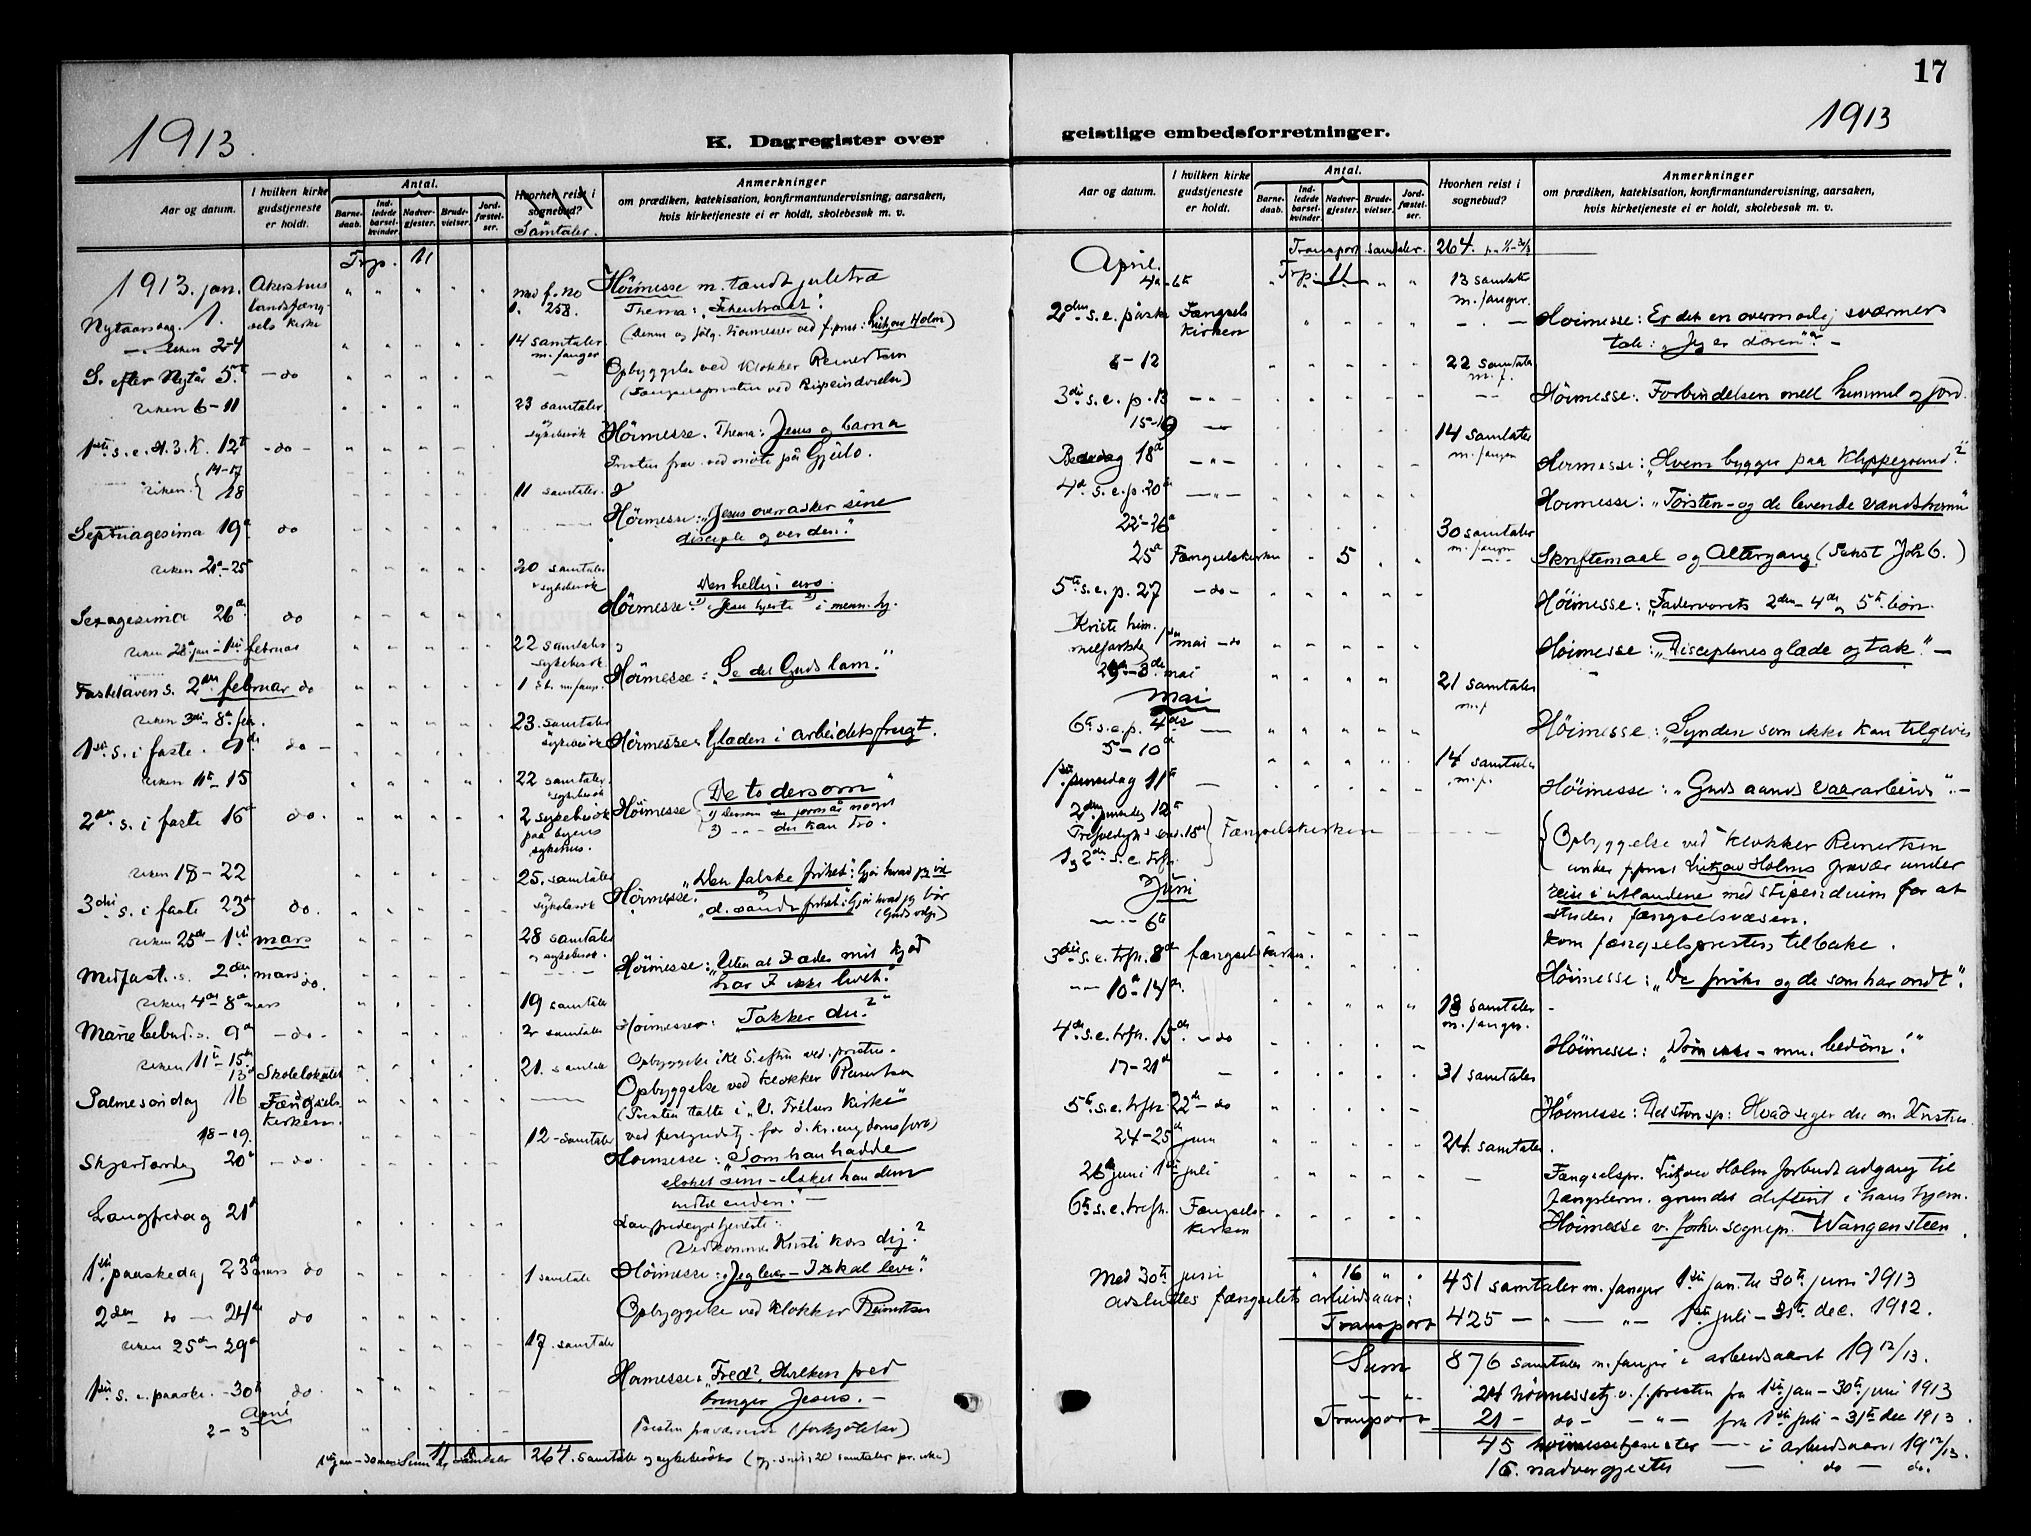 17
1913.
1913
K. Dagregister over
geistlige embedsforretninger.
Aar og datum.
I hvilken kirke gudstjeneste er holdt.
Antal.
Barnedaab.
Indledede barselkvinder
Nadvergjester.
Brudevielser.
Jordfæstelser.
Hvorhen reist i sognebud?
Samtaler.
Anmerkninger
om prædiken, katekisation, konfirmantundervisning, aarsaken,
hvis kirketjeneste ei er holdt, skolebesøk m. v.
Trp. 11
1913. jan. Akershus Høimesse m. tændt juletræ
Nytaarsdag. 1. landsfængsels kirke 258. Thema:
uken 2-4 14 samtaler m. fanger
S. efter Nytår 5. - do Opbyggelse ved klokker Reinertsen
uken 6-11 23 samtaler sykebesøk
1ste s. e. H. 3. K. 12te - do - Høimesse. Thema: Jesus og barna
14-17
uken 18 11 samtaler. Presten frav. ved møte på Gjøvik.
Septuagesima 19de do Høimesse: "Jesus overrasker sine
disciple og verden."
uken 21-25 20 samtaler sykebesøk
Sexagesima 26de do Høimesse: Den hellig i evo.
uken 28de jan - 1ste februar 22 samtaler sykebesøk
Fastelavens s. 2den februar do Høimesse: "Se det Guds lam."
uken 3die - 8de feb. 23. samtaler sykebesøk
1ste s. i faste. 9de do - Høimesse: Glæden i arbeidets frugt.
uken 11te - 15 22 samtaler sykebesøk
2den s. i faste 16de do. 2 sykebesøk paa byens sykehus. Høimesse "De to dersom"
1) Dersom du formår noget
2) - - - du kan tro.
uken 18 - 22 25. samtaler sykebesøk
3die s. i faste 23de do. Høimesse. "Den falske frihet: Gjør hvad jeg vil
d. sande frihet: Gjør hvad jeg bør
(Guds vilje)
uken 25de - 1ste mars 28 samtaler og sykebesøk.
Midfast. s. 2den mars. do. Høimesse: "Uten at I æder mit kjød
har I ikke livet."
uken 4de - 8de mars 19 samtaler
Marie bebud. s. 9de - do - 2 samtaler Høimesse: Takker du?"
uken 11te - 15de 21. samtaler
13de Skolelokalet
Palmesøndag 16 Fængselskirken. Opbyggelse ved klokker Reinertsen
(Presten talte i "V. Frelsers Kirke"
18 - 19. 12 - samtaler
Skjærtorsdag 20de - do - Høimesse: "Som han hadde
elsket sine - elsket han dem
indtil enden." -
Langfredag 21de Langfredagstjeneste:
Vedkommer Kristi kors dig?
1ste paaskedag 23de mars do 1 samtale Høimesse: "Jeg lever - I skal leve."
2den do - 24de do Opbyggelse ved klokker Reinertsen
uken 25de - 29de 17. samtaler
1ste s. e. paaske. - 30te do. Høimesse: "Fred". Hvilken fred
bringer Jesus. -
April
2 - 3 Presten fraværende (forkjølelse)
11 264. samtaler og sykebesøk
Aar og datum.
I hvilken kirke gudstjeneste er holdt.
Antal.
Barnedaab.
Indledede barselkvinder
Nadvergjester.
Brudevielser.
Jordfæstelser.
Hvorhen reist i sognebud?
Anmerkninger
om prædiken, katekisation, konfirmantundervisning, aarsaken,
hvis kirketjeneste ei er holdt, skolebesøk m. v.
Transport samtaler. 264.
April. Trp: 11
13 samtaler m. fanger.
2den s. e. påske Fængsels kirken Høimesse: Er det en overmodig sværmers
tale: "Jeg er døren"? -
8 - 12 22 samtaler m. f.
3die s. e. p. 13 Høimesse: Forbindelsen mell himmel og jord.
14 samtaler m. fanger
Bededag 18de Høimesse: "Hvem bygger paa klippegrund?"
4de s. e. p. 20de Høimesse: "Tørsten - og de levende vandstrømme"
22-26de 30 samtaler m. fanger
25de Fængselskirken 5 Skriftemaal og Altergang
5te s. e. p. 27 - do - Høimesse: "Fadervorets 2den - 4de og 5te bøn.
Kristi himmelfartsdg 1ste mai - do Høimesse: "Disciplenes glæde og tak." -
mai 21 samtaler m. f.
Mai
6te s. e. p. 4de Høimesse: "Synden som ikke kan tilgives
5 - 10de 14 samtaler m. f.
1ste pinsedag 11te Høimesse: "Guds aands vaararbeide". -
2den pinsedag 12te
Fængselskirken
1 og 2den s. e. trefn.
Opbyggelse ved klokker Reinertsen
under f. pres. Lützow Holms fravær under
reise i utlandene med stipendium for at
studere fængselsvæsen.
Juni
6te kom fængselspresten tilbake.
3die s. e. trefn. 8de fængselskirken. Høimesse: "De friske og de som har ondt".
10de - 14de 18 samtaler m. fanger.
4de s. e. trefn. 15de - do Høimesse: "Døm ikke - men bedøm!"
17 - 21de 31 samtaler
5te s. e. trefn. 22de - do Høimesse:
24 - 25de juni 24. samtaler.
26de juni 1ste juli Fængselspr. Lützow Holm forbudt adgang til
fængslerne grundet difteri i hans hjem.
6te s. e. trefn. Fængselskirken Høimesse v. sognepr. Wangensteen.
Med 30te juni 16 451 samtaler m. fanger 1ste jan. til 30te juni 1913
avsluttes fængselets arbeidsaar:
Transport 425 - " - " - 1ste juli - 31te dec. 1912.
Sum 876 samtaler m. fanger i arbeidsaaret 1912/13.
24 høimessetj. v. f. presten fra 1ste jan - 30te juni 1913
Transport 21 - do - - " - fra 1ste juli - 31te dec 1913.
45 høimessetjenester - i arbeidsaaret 1912/13.
16. nadvergjester - do - do.